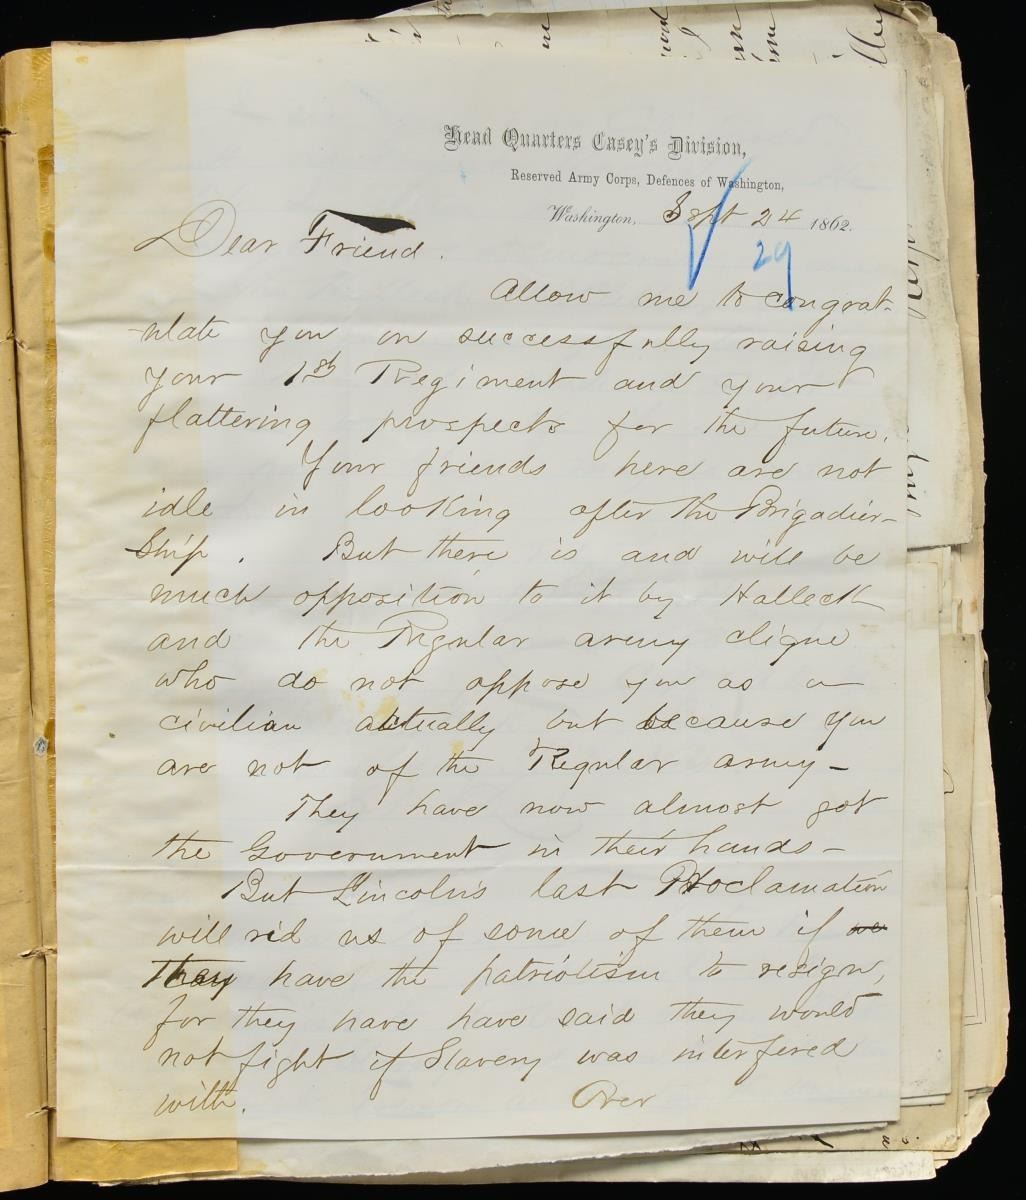 Head Quarters Casey's Division,
Reserved Army Corps, Defences of Washington,
Washington, Sept 24 1862.
29
Dear Friend.
Allow me to congrat-
ulate you on successfully raising
your 1st Regiment and your
flattering prospects for the future.
Your friends here are not
idle in looking after the Brigadier-
ship. But there is and will be
much opposition to it by Halleck
and the Regular army clique
who do not oppose you as a
civilian actually but because you
are not of the Regular army—
They have now almost got
the Government in their hands—
But Lincoln's last Proclamation
will rid us of some of them if we
they have the patriotism to resign,
for they have have said they would
not fight if Slavery was interfered
with. Over